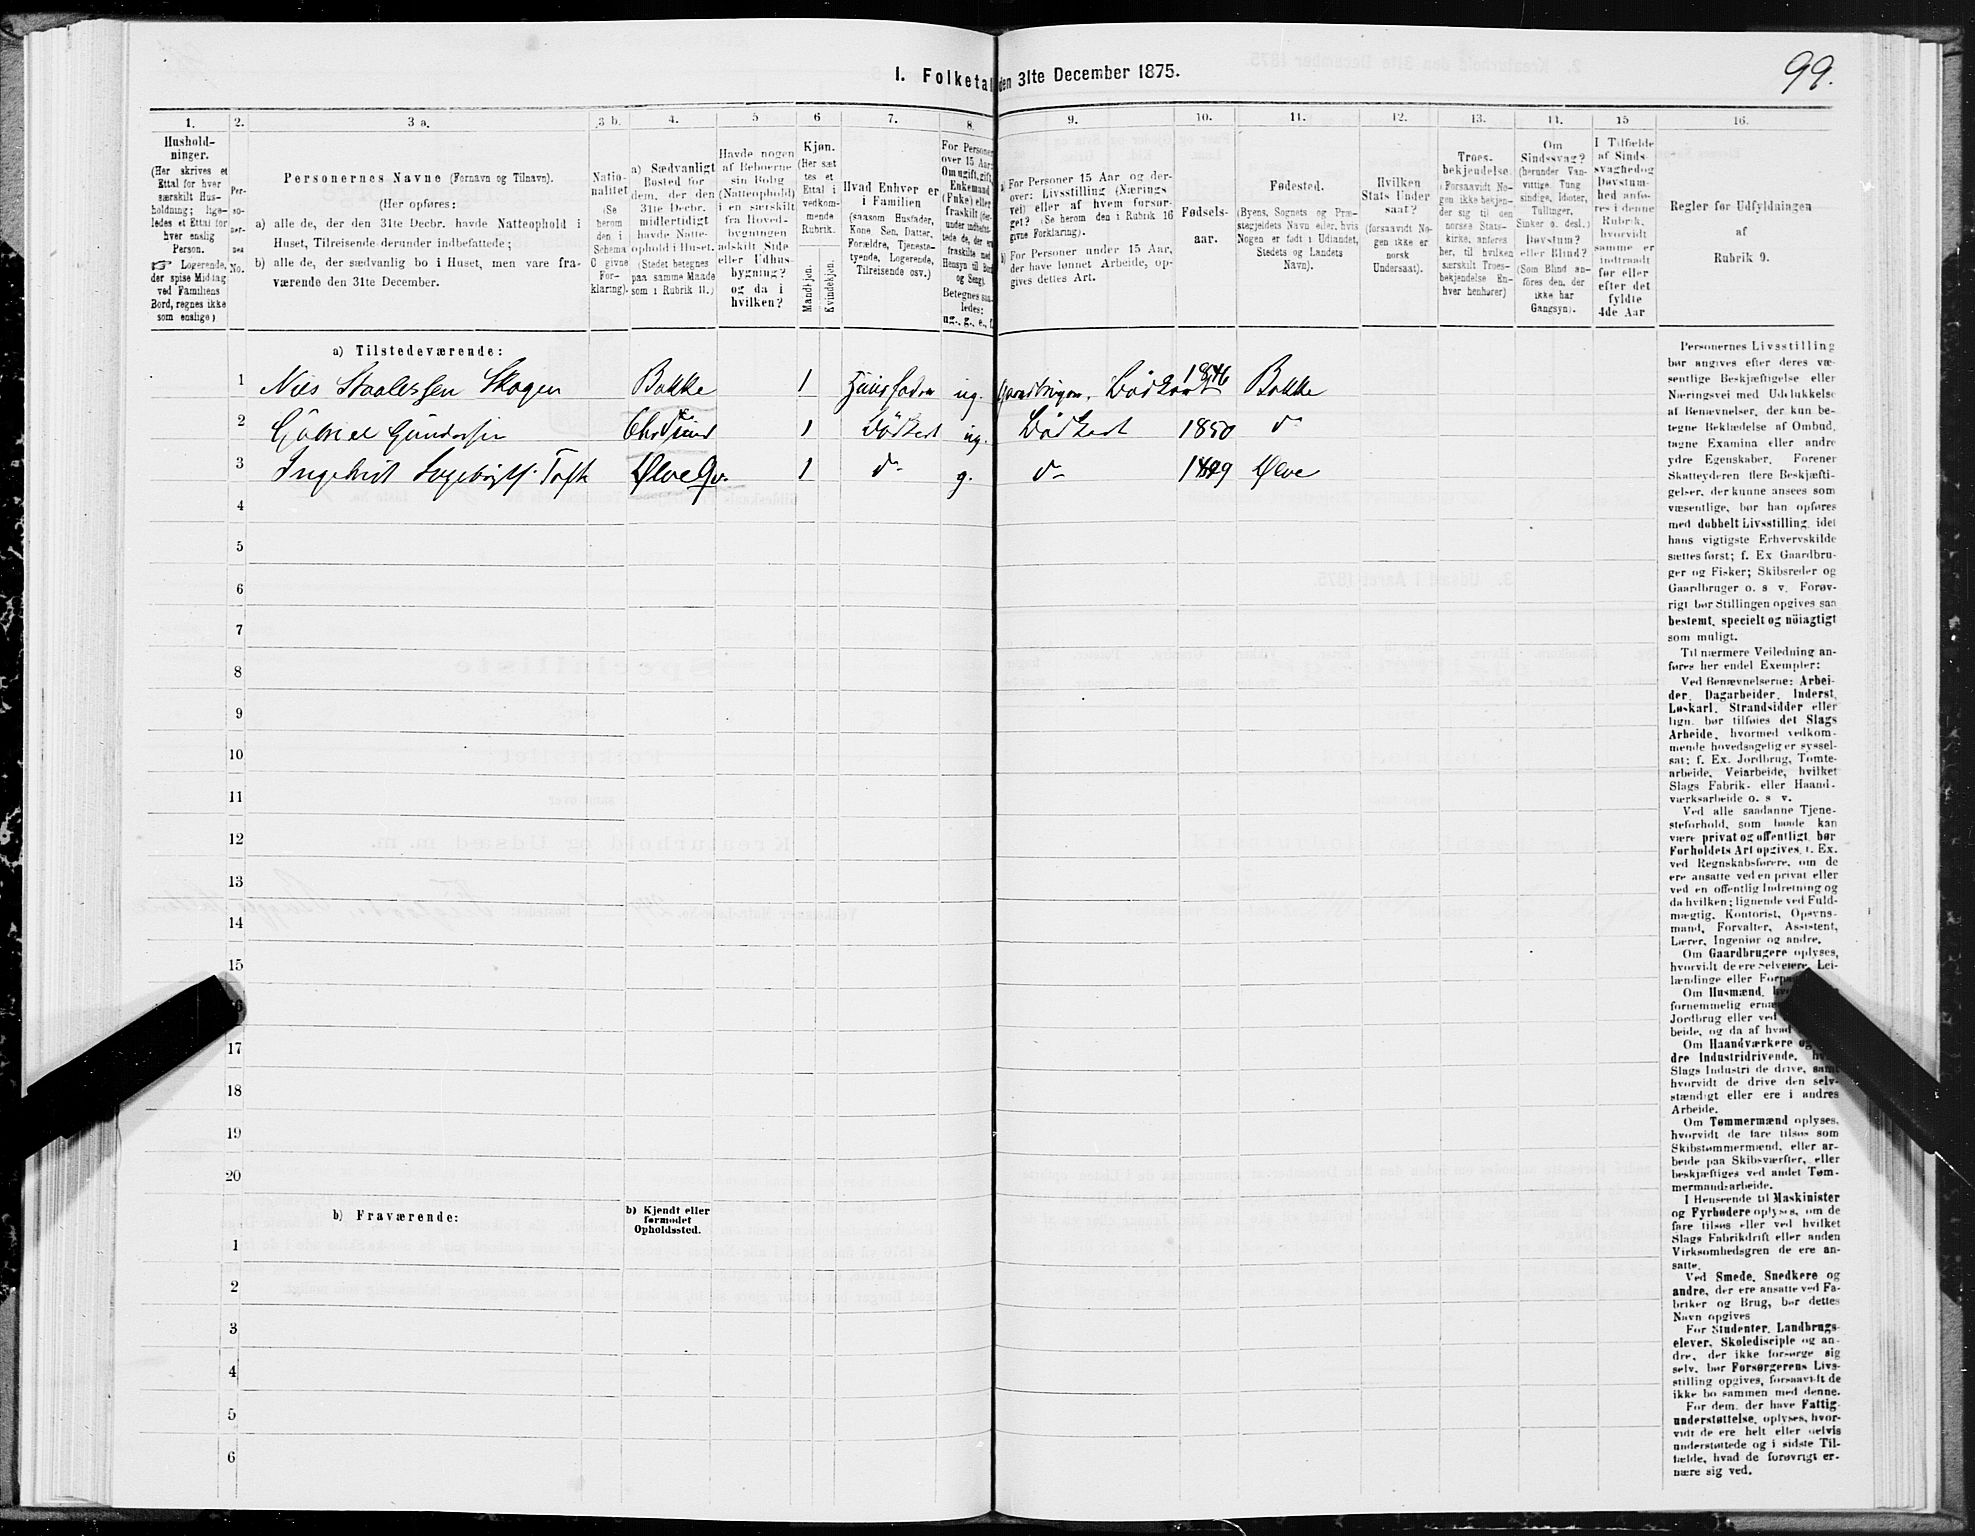 99.
I. Folketal den 31te December 1875.
1. 2. 3 a. 3 b. 4. 5 6 7. 8. 9. 10. 11. 12. 13. 14. 15 16.
Husholdninger.
(Her skrives et
Ettal for hver
særskilt Husholdning; ligeledes
et Ettal for
hver enslig
Person.
☞ Logerende,
der spise Middag
ved Familiens
Bord, regnes ikke
som enslige)
Personernes No.
Personernes Navne (Fornavn og Tilnavn).
(Her opføres:
a) alle de, der den 31te Decbr. havde Natteophold i
Huset, Tilreisende derunder indbefattede;
b) alle de, der sædvanlig bo i Huset, men vare fraværende
den 31te December.
Nationalitet
(Se
herom
den i
Schema
C givne
Forklaring).
a) Sædvanligt
Bosted for
dem, der den
31te Decbr.
midlertidigt
havde Natteophold
i Huset.
(Stedet betegnes
paa samme Maade
som i Rubrik 11.)
Havde nogen
af Beboerne
sin Bolig
(Natteophold)
i en særskilt
fra Hovedbygningen
adskilt Side
eller Udhusbygning?
og da i
hvilken?
Kjøn.
(Her sættes
et
Ettal i
vedkommende
Rubrik.
Mandkjøn.
Kvindekjøn.
Hvad Enhver er
i Familien
(saasom Husfader,
Kone Søn, Datter,
Forældre, Tjenestetyende,
Logerende,
Tilreisende osv.)
For Personer
over 15 Aar:
Om ugift, gift,
Enkemand
(Enke) eller
fraskilt
Betegnes saaledes:
ug., g., e., f.
a) For Personer 15 Aar og derover:
Livsstilling (Næringsvei)
eller af hvem forsørget?
(Se herom den i Rubrik 16
givne Forklaring).
b) For Personer under 15 Aar,
der have lønnet Arbeide, opgives
dettes Art.
Fødselsaar.
Fødested.
(Byens, Sognets og Præstegjeldets
Navn eller, hvis
Nogen er født i Udlandet,
Stedets og Landets
Navn).
Hvilken
Stats Undersaat?
(forsaavidt Nogen
ikke er
norsk
Undersaat).
Troesbekjendelse.
(Forsaavidt Nogen
ikke bekjender
sig til den
norske Statskirke,
anføres
her, til hvilken
særskilt Troesbekjendelse
Enhver
henhører)
Om
Sindssvag?
(herunder Vanvittige,
Tungsindige,
Idioter,
Tullinger,
Sinker o. desl.)
Døvstum?
eller Blind?
(Som Blind anføres
den, der
ikke har
Gangsyn).
I Tilfælde
af Sindssvaghed
og
Døvstumhed
anføres
i denne
Rubrik,
hvorvidt
samme er
indtraadt
før eller
efter det
fyldte
4de Aar
Regler for Udfyldningen
af
Rubrik 9.
a) Tilstedeværende:
1 Nils Staalessen Skogen Bakke 1 Huusfader ug. Gaardbruger, Bødker 1846 Bakke
2 Gabriel Gundersen 1 Bødker ug. Bødker 1850 do
3 Ingebrigts. Toft Ølve 1 do g. do 1849 Ølve
4
5
6
7
8
9
10
11
12
13
14
15
17
18
19
20
b) Fraværende:
b) Kjendt eller
formodet
Opholdssted.
1
2
3
4
5
6
Personernes Livsstilling
bør angives efter deres væsentlige
Beskjæftigelse eller
Næringsvei med Udelukkelse
af Benævnelser, der kun betegne
Beklædelse af Ombud,
tagne Examina eller andre
ydre Egenskaber. Forener
Skatteyderen flere Beskjæftigelser,
der kunne ansees som
væsentlige, bør han opføres
med dobbelt Livsstilling, idet
hans vigtigste Erhvervskilde
sættes først; f. Ex Gaardbruger
og Fisker; Skibsreder og
Gaardbruger o. s v. Forøvrigt
bør Stillingen opgives saa
bestemt, specielt og nöiagtigt
som muligt.
Til nærmere Veiledning anføres
her endel Exempler:
Ved Benævnelserne: Arbeider,
Dagarbeider, Inderst,
Løskarl, Strandsidder eller
lign. bør tilføies det Slags
Arbeide, hvormed vedkommende
hovedsagelig er sysselsat;
f. Ex. Jordbrug, Tomtearbeide,
Veiarbeide, hvilket
Slags Fabrik- eller Haandværksarbeide
o. s v.
Ved alle saadanne Tjenesteforhold,
som baade kan
være privat og offentligt, bør
Forholdets Art opgives, f. Ex.
ved Regnskabsførere, om de
ere ansatte ved en privat eller
ved en offentlig Indretning og
da hvilken; lignende ved Fuldmægtig,
Kontorist, Opsynsmand,
Forvalter, Assistent,
Lærer, Ingeniør og andre.
Om Gaardbrugere oplyses,
hvorvidt de ere Selveiere, Leilændinge
eller
Om Husmænd,
fornemmelig
Jordbrug eller ved
beide, og da af hvad
Om Haandværkere og
dre Industridrivende,
Slags Industri de drive, samt
hvorvidt de drive den selvstændigt
eller ere i andres
Arbeide.
Om Tømmermænd oplyses,
hvorvidt de fare tilsøs som
Skibstømmermænd, eller arbeide
paa Skibsværfter, eller
beskjæftiges ved andet Tømmermandsarbeide.
I Henseende til Maskinister
og Fyrbødere oplyses, om de
fare tilsøs eller ved hvilket
Slags Fabrikdrift eller anden
Virksomhedsgren de ere ansatte.
Ved Smede, Snedkere og
andre, der ere ansatte ved Fabriker
og Brug, bør dettes
Navn opgives
For Studenter, Landbrugselever,
Skoledisciple og andre,
der ikke forsørge sig
selv, bør Forsørgerens Livsstilling
opgives, forsaavidt de
ikke bo sammen med denne.
For dem, der have Fattigunderstøttelse,
oplyses, hvorvidt
de ere helt eller delvis
understøttede og i sidste Tilfælde,
hvad de forøvrigt ernære
sig ved.